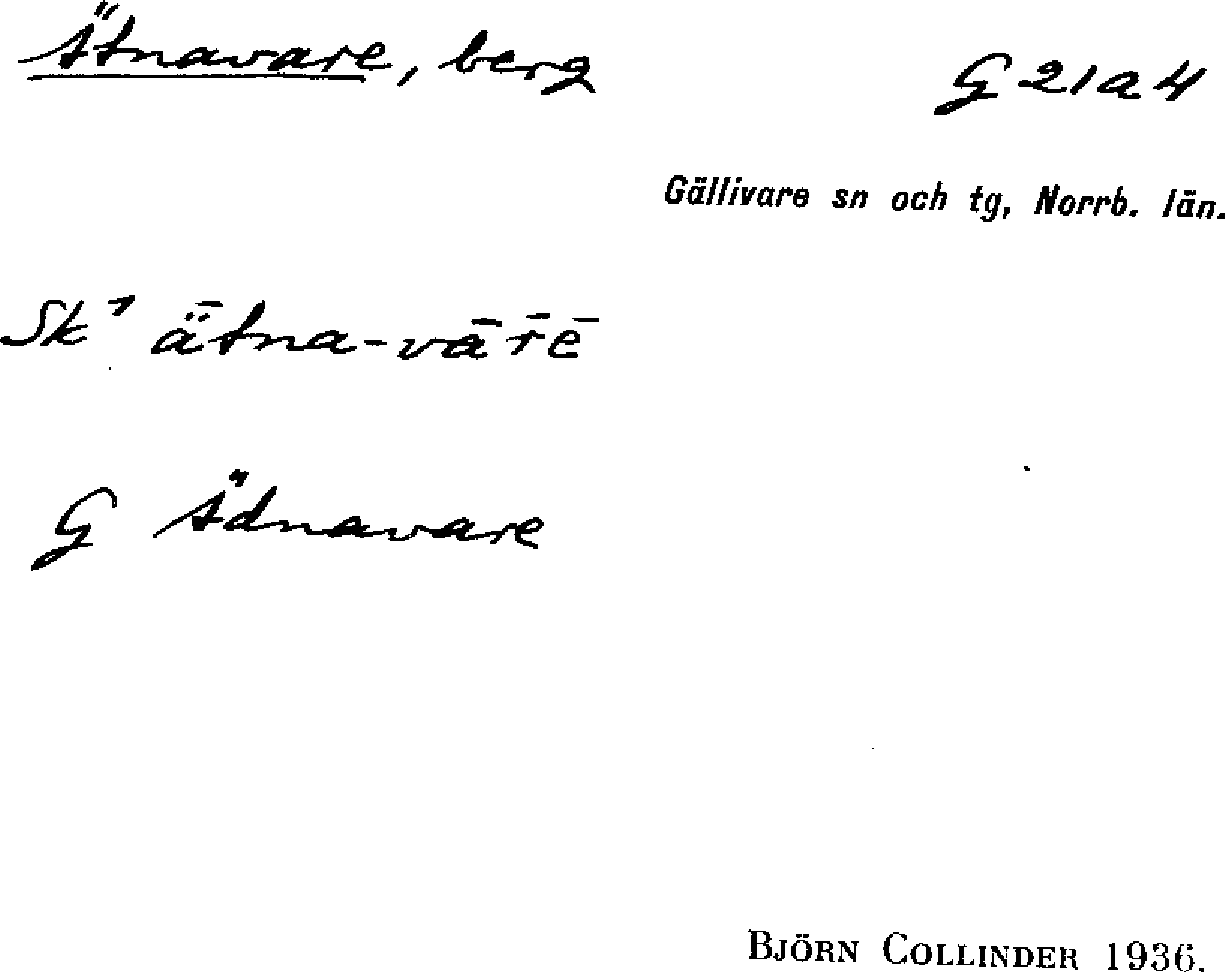 Ätnavare, berg
G 21a4
Gällivare sn och tg, Norrb. län.
Sk¹ ǟtna-vār̄ē
G Ädnavare
BJÖRN COLLINDER 1936.